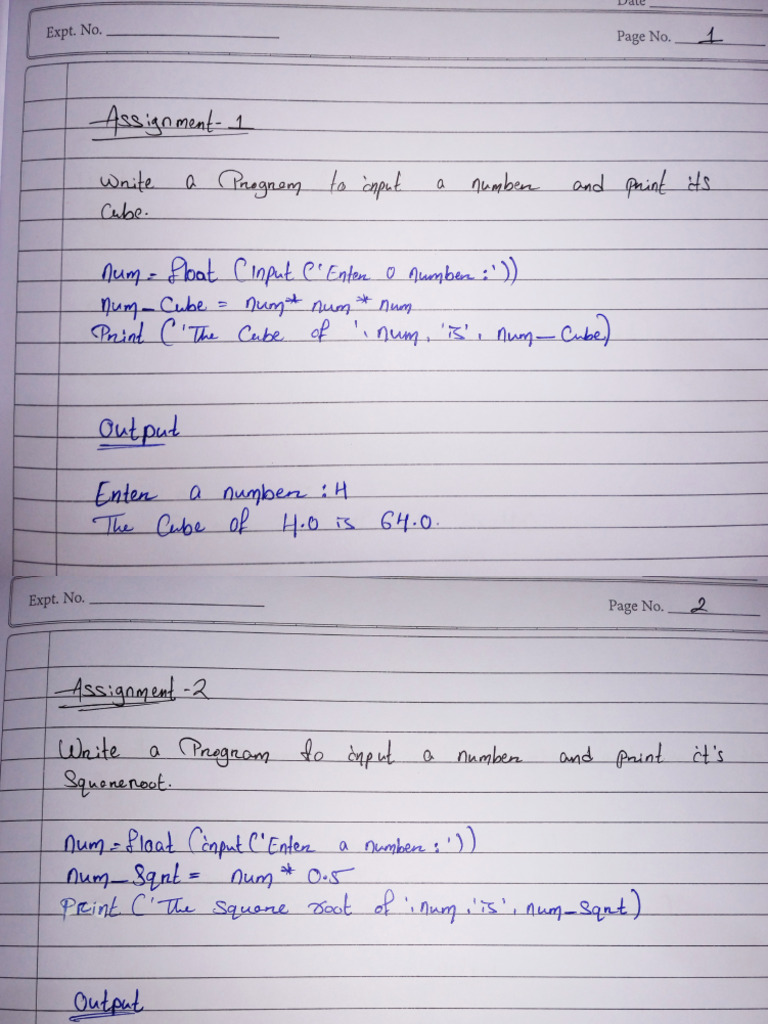 Date
Expt. No.
Page No. 1
Assignment-1
Write a Program to input a number and print its
Cube.
num = float (Input ('Enter a number :'))
num_Cube = num* num* num
Print ('The Cube of ', num, 'is', num_Cube)
Output
Enter a number : 4
The Cube of 4.0 is 64.0.
Expt. No.
Page No. 2
Assignment -2
Write a Program to input a number and print it's
Squareroot.
num = float (input ('Enter a number : '))
num_Sqrt = num * 0.5
Print ('The square root of ', num, 'is', num_Sqrt)
Output